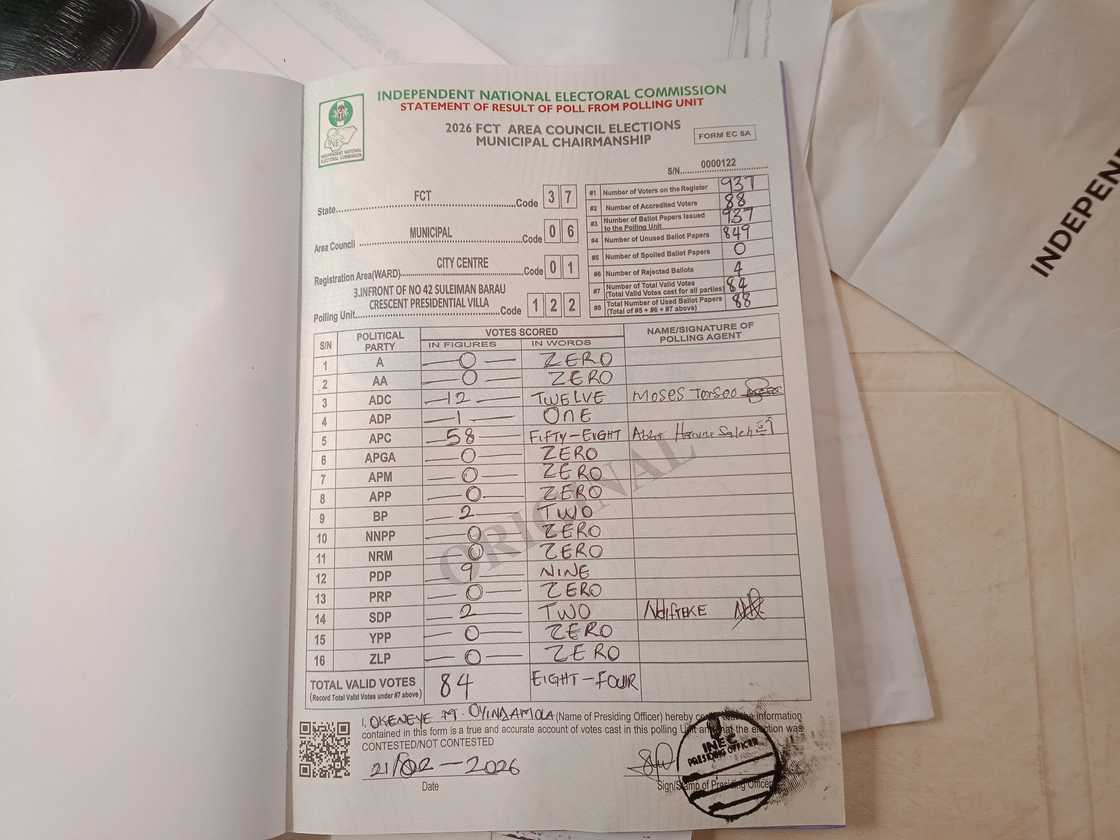 INDEPENDENT NATIONAL ELECTORAL COMMISSION
STATEMENT OF RESULT OF POLL FROM POLLING UNIT
2026 FCT AREA COUNCIL ELECTIONS
MUNICIPAL CHAIRMANSHIP
FORM EC 8A
INDEPENDENT NATIONAL ELECTORAL COMMISSION
S/N 0000122
State FCT Code 3 7
Area Council MUNICIPAL Code 0 6
Registration Area(WARD) CITY CENTRE Code 0 1
3.INFRONT OF NO 42 SULEIMAN BARAU
CRESCENT PRESIDENTIAL VILLA
Polling Unit Code 1 2 2
#1 Number of Voters on the Register 937
#2 Number of Accredited Voters 88
#3 Number of Ballot Papers Issued to the Polling Unit 937
#4 Number of Unused Ballot Papers 849
#5 Number of Spoiled Ballot Papers 0
#6 Number of Rejected Ballots 4
#7 Number of Total Valid Votes (Total Valid Votes cast for all parties) 84
#8 Total Number of Used Ballot Papers (Total of #5 + #6 + #7 above) 88
S/N POLITICAL PARTY VOTES SCORED NAME/SIGNATURE OF POLLING AGENT
IN FIGURES IN WORDS
1 A 0 ZERO
2 AA 0 ZERO
3 ADC 12 TWELVE Moses Torsoo
4 ADP 1 ONE
5 APC 58 FIFTY-EIGHT Saleh
6 APGA 0 ZERO
7 APM 0 ZERO
8 APP 0 ZERO
9 BP 2 TWO
10 NNPP 0 ZERO
11 NRM 0 ZERO
12 PDP 9 NINE
13 PRP 0 ZERO
14 SDP 2 TWO NDIFREKE
15 YPP 0 ZERO
16 ZLP 0 ZERO
ORIGINAL
TOTAL VALID VOTES 84 EIGHT-FOUR
(Record Total Valid Votes under #7 above)
I, OKENEYE M. OYINDAMOLA (Name of Presiding Officer) hereby the information
contained in this form is a true and accurate account of votes cast in this polling Unit and that the election was
CONTESTED/NOT CONTESTED
21/02-2026
Date
Sign/Stamp of Presiding Officer
INEC
PRESIDING OFFICER
INDEPENDE